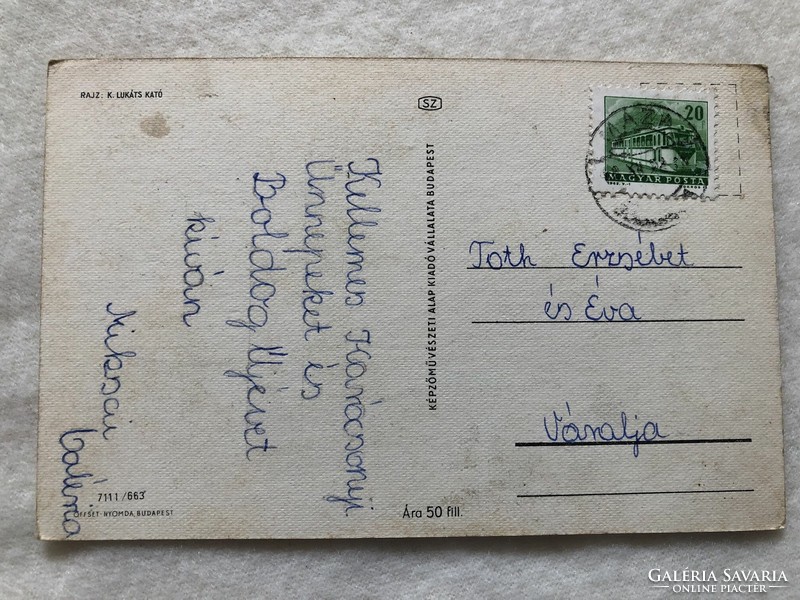 RAJZ: K. LUKÁTS KATÓ
SZ
20
MAGYAR POSTA
Kellemes Karácsonyi
Ünnepeket és
Boldog Újévet
kíván
Miksai
Valéria
KÉPZŐMŰVÉSZETI ALAP KIADÓ VÁLLALATA BUDAPEST
Toth Erzsébet
és Éva
Váralja
7111/663
OFFSET-NYOMDA, BUDAPEST
Ára 50 fill.
GALÉRIA SAVARIA
ONLINE PIACTÉR